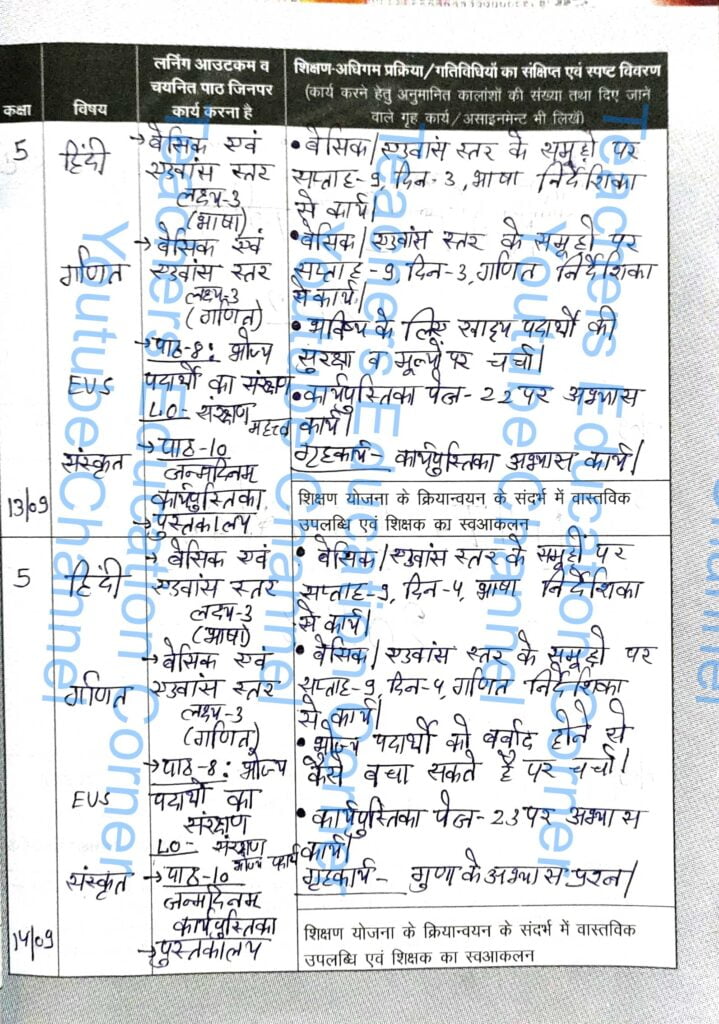 कक्षा
विषय
लर्निंग आउटकम व
चयनित पाठ जिनपर
कार्य करना है
शिक्षण-अधिगम प्रक्रिया/गतिविधियों का संक्षिप्त एवं स्पष्ट विवरण
(कार्य करने हेतु अनुमानित कालांशों की संख्या तथा दिए जाने
वाले गृह कार्य/असाइनमेन्ट भी लिखें)
5
हिंदी
→ बेसिक एवं
एडवांस स्तर
लक्ष्य-3
(भाषा)
• बेसिक/एडवांस स्तर के समूहो पर
सप्ताह-9, दिन-3, भाषा निर्देशिका
से कार्य।
गणित
→ बेसिक एवं
एडवांस स्तर
लक्ष्य-3
(गणित)
• बेसिक/एडवांस स्तर के समूहो पर
सप्ताह-9, दिन-3, गणित निर्देशिका
से कार्य।
EVS
→ पाठ-8: भोज्य
पदार्थों का संरक्षण
LO- संरक्षण
महत्त्व
• भविष्य के लिए खाद्य पदार्थों की
सुरक्षा व मूल्यों पर चर्चा।
• कार्यपुस्तिका पेज-22 पर अभ्यास
कार्य।
संस्कृत
→ पाठ-10
जन्मदिनम
कार्यपुस्तिका
→ पुस्तकालय
गृहकार्य- कार्यपुस्तिका अभ्यास कार्य।
13/09
शिक्षण योजना के क्रियान्वयन के संदर्भ में वास्तविक
उपलब्धि एवं शिक्षक का स्वआकलन
5
हिंदी
→ बेसिक एवं
एडवांस स्तर
लक्ष्य-3
(भाषा)
• बेसिक/एडवांस स्तर के समूहों पर
सप्ताह-9, दिन-4, भाषा निर्देशिका
से कार्य।
गणित
→ बेसिक एवं
एडवांस स्तर
लक्ष्य-3
(गणित)
• बेसिक/एडवांस स्तर के समूहो पर
सप्ताह-9, दिन-4, गणित निर्देशिका
से कार्य।
EVS
→ पाठ-8: भोज्य
पदार्थों का
संरक्षण
LO- संरक्षण
• भोज्य पदार्थों को बर्बाद होने से
कैसे बचा सकते है पर चर्चा।
• कार्यपुस्तिका पेज-23 पर अभ्यास
कार्य।
संस्कृत
→ पाठ-10
जन्मदिनम
कार्यपुस्तिका
→ पुस्तकालय
गृहकार्य- गुणा के अभ्यास प्रश्न।
14/09
शिक्षण योजना के क्रियान्वयन के संदर्भ में वास्तविक
उपलब्धि एवं शिक्षक का स्वआकलन
Teachers Education Corner
Youtube Channel
Teachers Education Corner
Youtube Channel